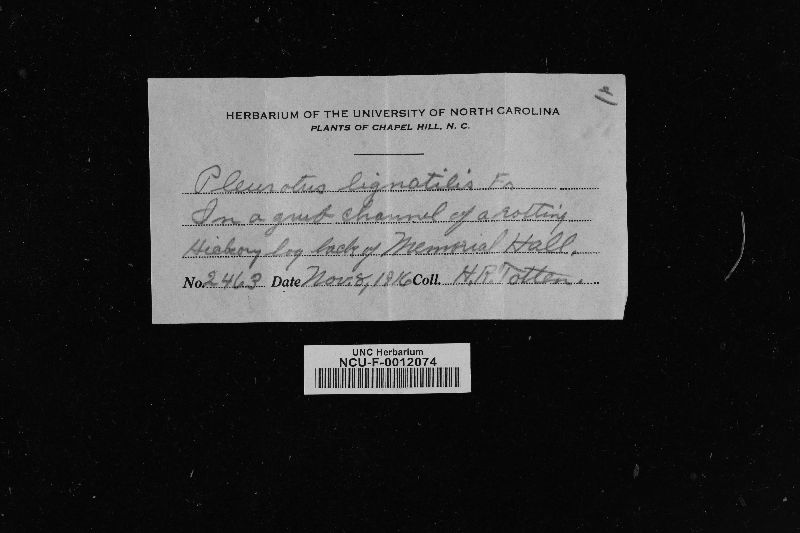 HERBARIUM OF THE UNIVERSITY OF NORTH CAROLINA
PLANTS OF CHAPEL HILL, N. C.
Pleurotus lignatilis Fr.
In a grub channel of a rotting
Hickory log back of Memorial Hall.
No. 2463 Date Nov. 8, 1916 Coll. H.R. Totten.
UNC Herbarium
NCU-F-0012074